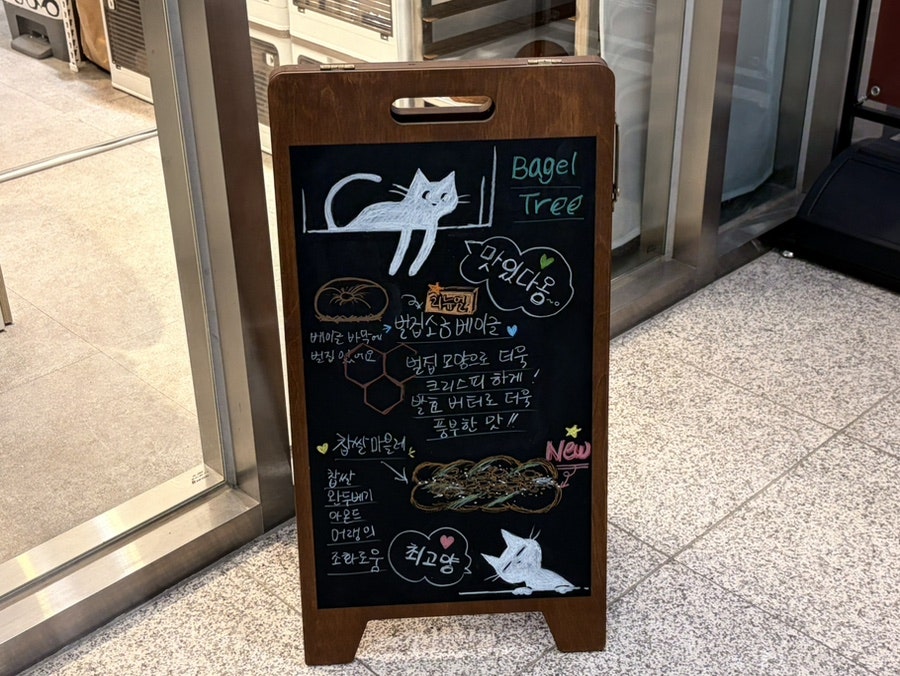 Bagel
Tree
맛있다옹..
리뉴얼!
벌집소금베이글
베이글 바닥에
벌집 있어요
벌집 모양으로 더욱
크리스피 하게!
발효 버터로 더욱
풍부한 맛!!
찹쌀마블러
New
찹쌀
완두배기
아몬드
머랭의
조화로움
최고양